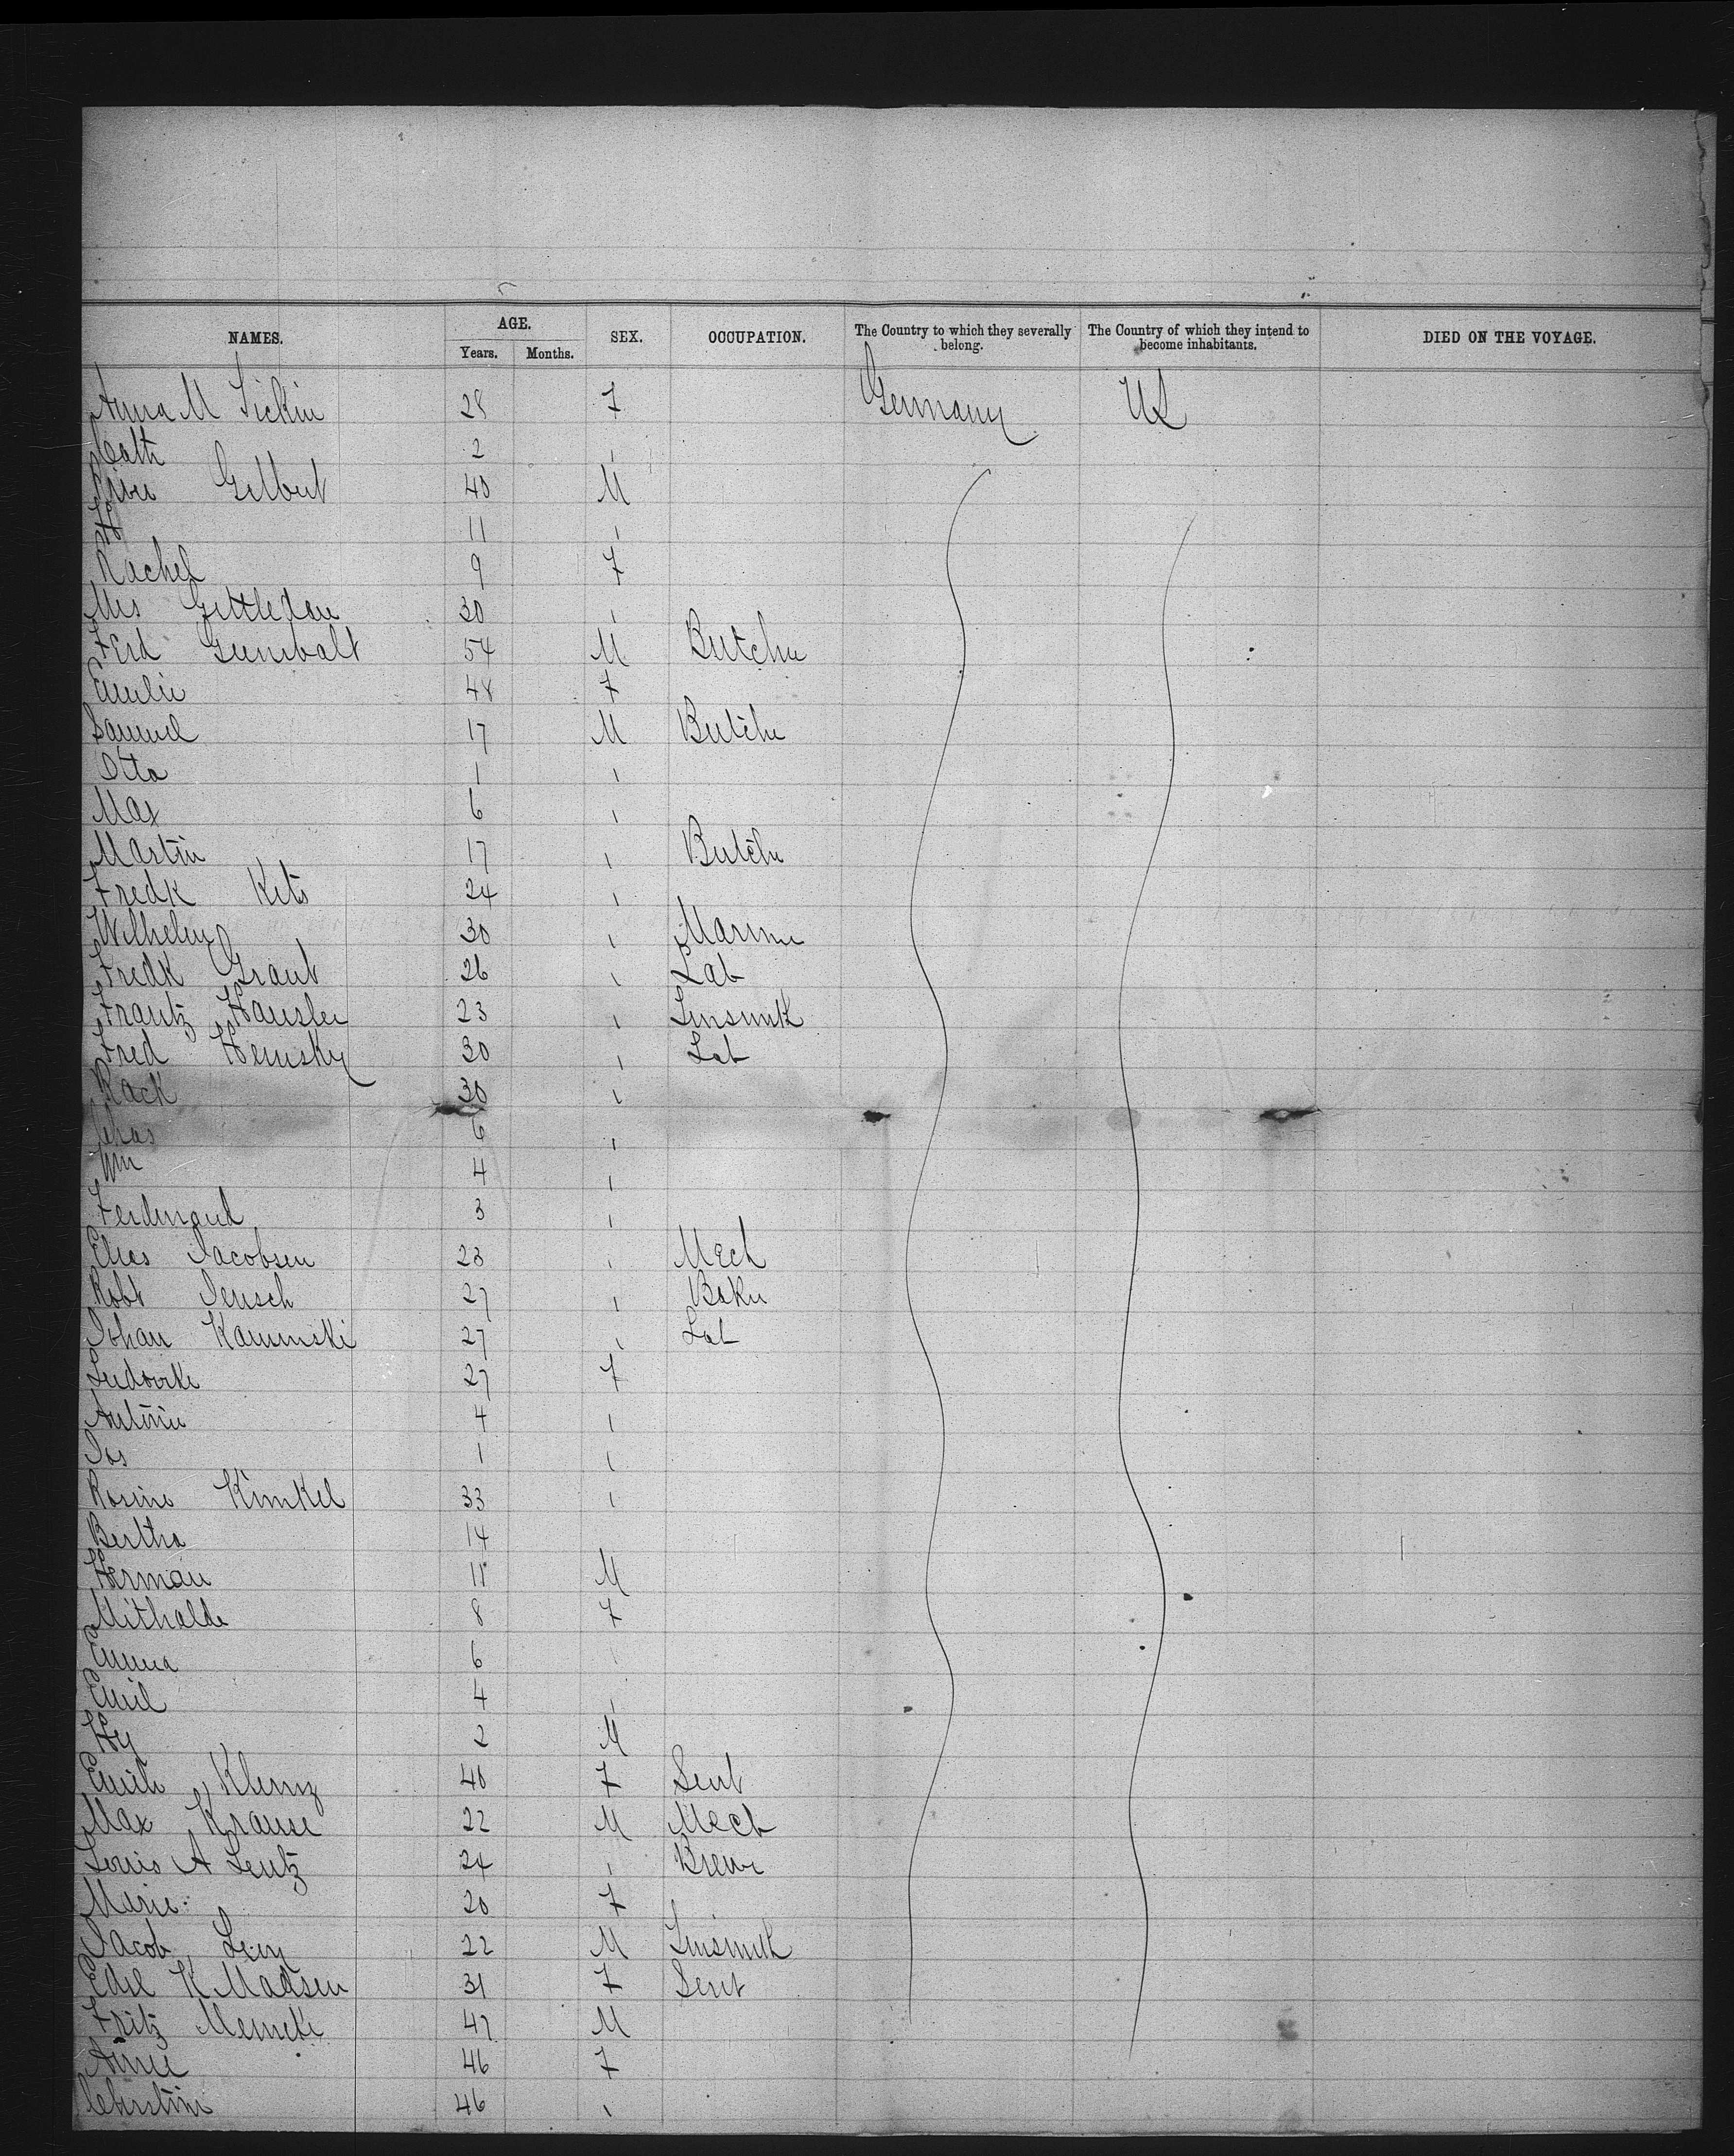 NAMES. AGE. SEX. OCCUPATION. The Country to which they severally belong. The Country of which they intend to become inhabitants. DIED ON THE VOYAGE.
Years. Months.
Anna M 28 F Germany US
Cath 2 "
Gilbert 40 M
Hy 11 "
Rachel 9 F
Mrs 30 "
Ferd Grunwalt 54 M Butcher
Emilie 48 F
Samuel 17 M Butcher
Otto 1 "
Max 6 "
Martin 17 " Butcher
Fredk Kets 24 "
Wilhelm 30 " Mariner
Fredk Graut 26 " Lab
Frantz Hausler 23 " Tinsmith
Fred Hemsky 30 " Lab
Rack 30 "
Chas 6 "
Wm 4 "
Ferdinand 3 "
Elias Jacobsen 23 " Mech
Robt Jensch 27 " Baker
Johan Kaminski 27 " Lab
Ludovike 27 F
Antonie 4 "
Jos 1 "
Rosine Kimkel 33 "
Bertha 14
Herman 11 M
Mithalde 8 F
Emma 6
Emil 4 "
Hy 2 M
Emilie Klemz 40 F Servt
Max Krause 22 M Mech
Louis A Lentz 24 " Brewer
Marie 20 F
Jacob Levy 22 M Tinsmith
Edel K Madsen 31 F Servt
Fritz Meincke 47 M
46 F
46 "